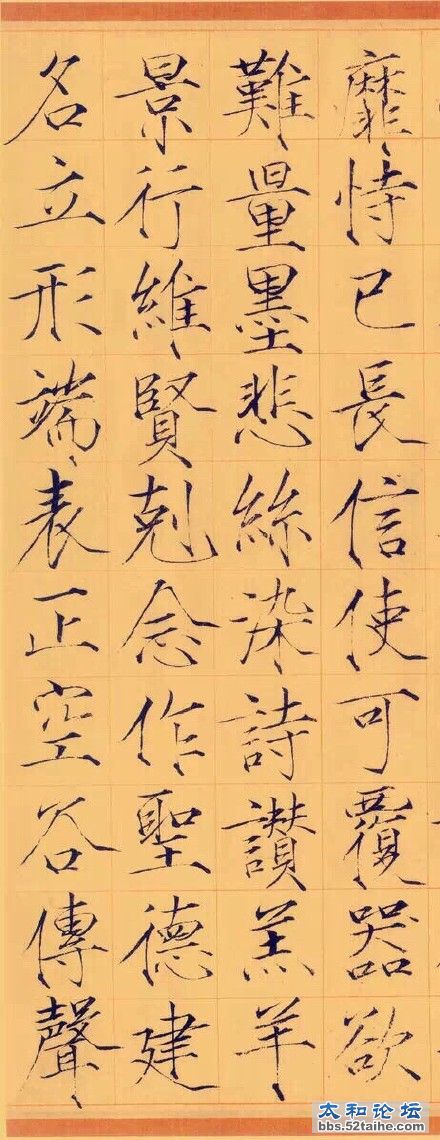 靡恃已長信使可覆器欲
難量墨悲絲染詩讃羔羊
景行維賢剋念作聖德建
名立形端表正空谷傳聲
太和论坛
bbs.52taihe.com